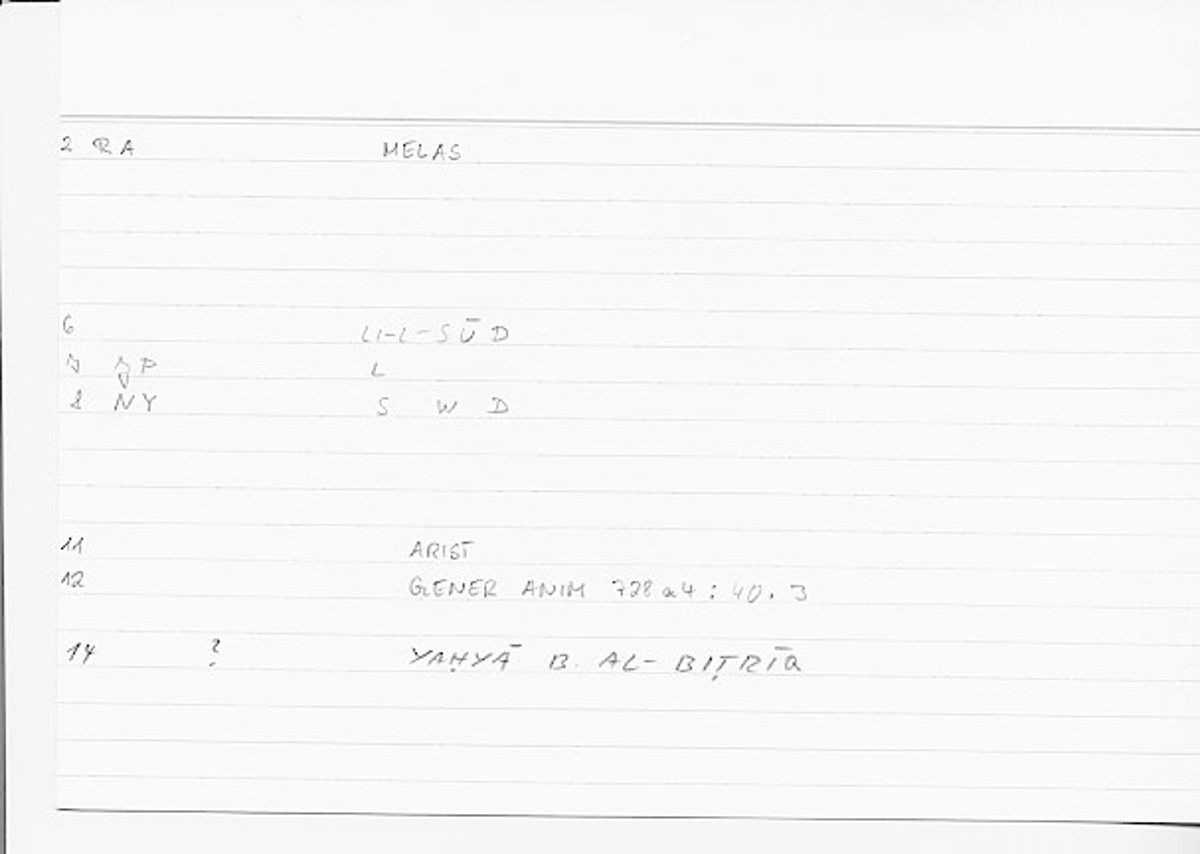 2 RA MELAS
6 LI-L-SŪD
7 JP L
8 NY S W D
11 ARIST
12 GENER ANIM 728a4 : 40.3
14 ? YAḤYĀ B. AL-BIṬRĪQ